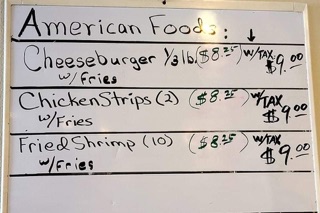 American Foods: ↓
Cheeseburger 1/3 lb. ($8.25) w/TAX $9.00
w/fries
Chicken Strips (2) ($8.25) w/TAX $9.00
w/Fries
Fried Shrimp (10) ($8.25) w/TAX $9.00
w/Fries